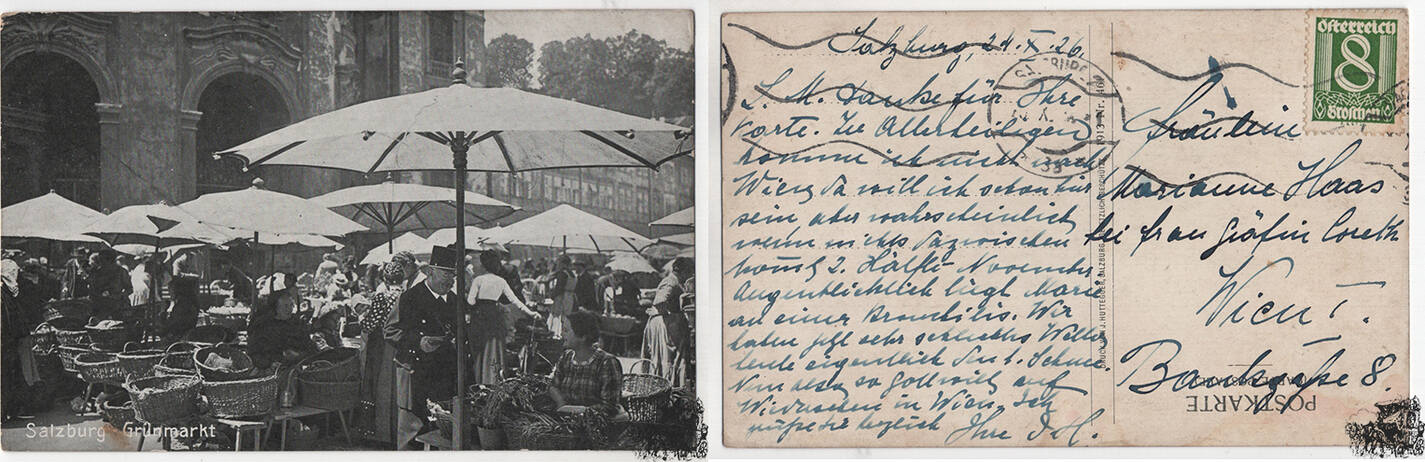 Salzburg Grünmarkt
Salzburg, 29. X. 26.
L. M. Danke für Ihre
Karte. Zu Allerheiligen
komme ich nicht nach
Wien, da will ich schon hier
sein aber wahrscheinlich
wenn nichts dazwischen
kommt 2. Hälfte November
Augenblicklich liegt Marie
an einer Bronchitis. Wir
haben jetzt sehr schlechtes Wetter
heute eigentlich den 1. Schnee.
Nun also so Gott will auf
Wiedersehen in Wien. Ich
grüße Sie herzlich
Ihre
DRUCK VON J. HUTTEGGER, SALZBURG. GESETZLICH GESCHÜTZT 1913 Nr.
Österreich
8
Groschen
Fräulein
Marianne Haas
bei Frau Gräfin Coreth
Wien I.
Bankgasse 8.
POSTKARTE